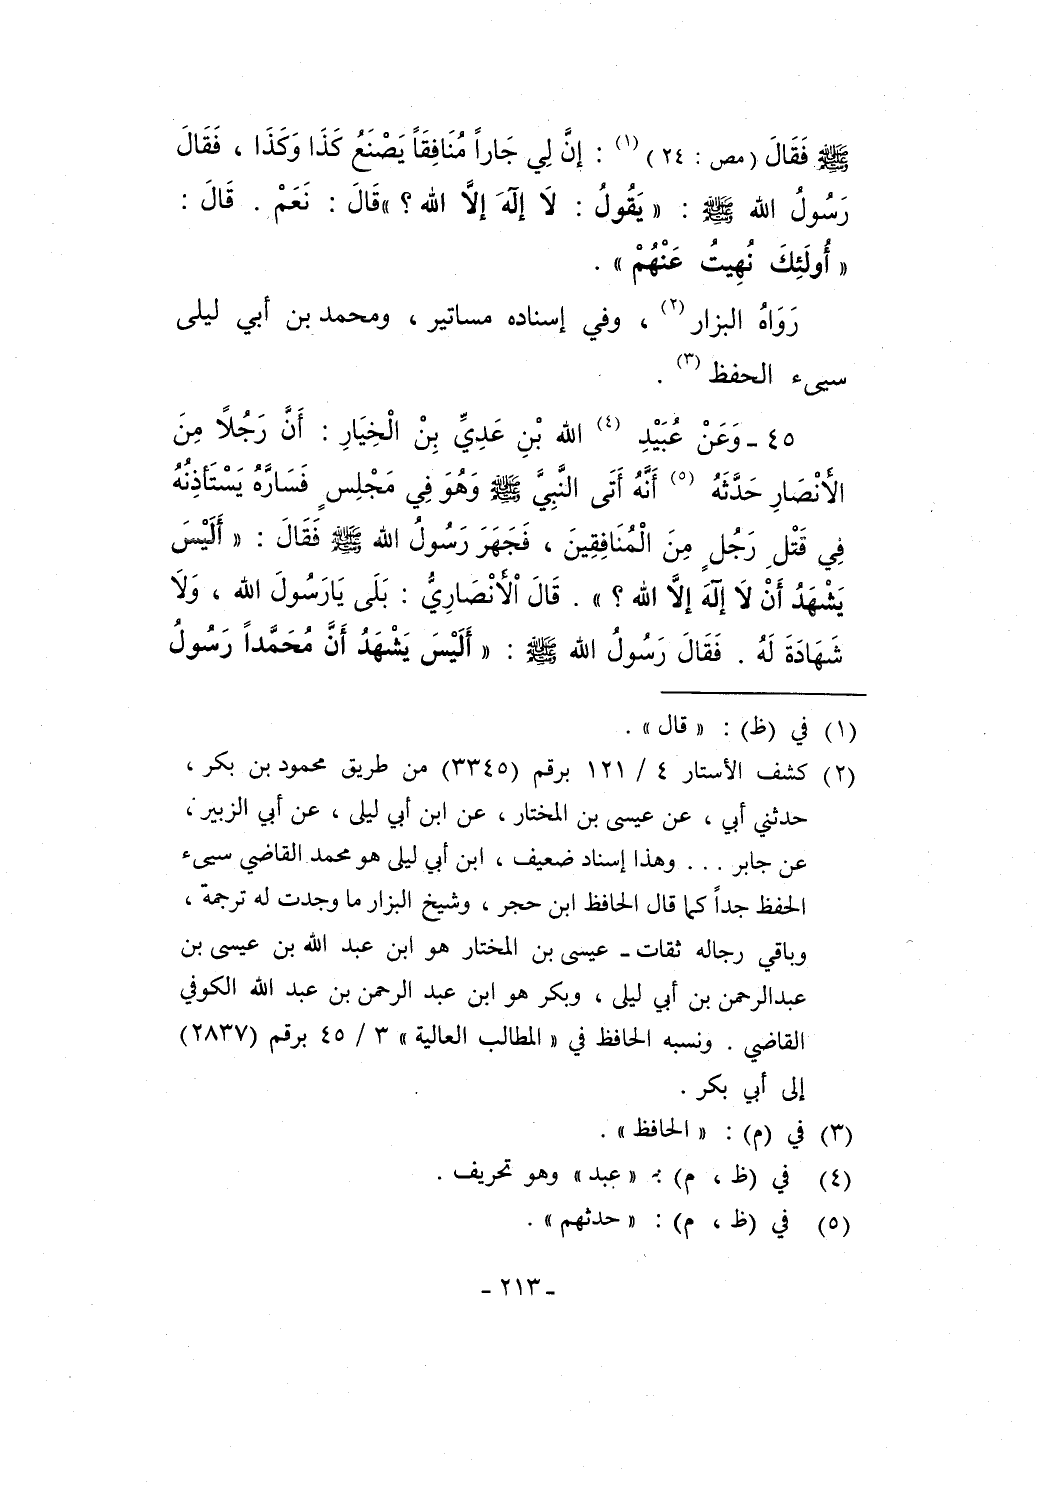 ﷺ فَقَالَ ( مص : ٢٤ ) (١) : إنَّ لِي جَاراً مُنَافِقَاً يَصْنَعُ كَذَا وَكَذَا ، فَقَالَ
رَسُولُ الله ﷺ : « يَقُولُ : لَا إلَهَ إلاَّ الله ؟ »قَالَ : نَعَمْ . قَالَ :
« أُولَئِكَ نُهِيتُ عَنْهُمْ » .
رَوَاهُ البزار (٢) ، وفي إسناده مساتير ، ومحمد بن أبي ليلى
سيىء الحفظ (٣) .
٤٥ ـ وَعَنْ عُبَيْدِ (٤) الله بْنِ عَدِيِّ بِنْ الْخِيَارِ : أَنَّ رَجُلاً مِنَ
الأَنْصَارِ حَدَّثَهُ (٥) أَنَّهُ أَتَى النَّبِيَّ ﷺ وَهُوَ فِي مَجْلِسٍ فَسَارَّهُ يَسْتَأذِنُهُ
فِي قَتْلِ رَجُلٍ مِنَ الْمُنَافِقِينَ ، فَجَهَرَ رَسُولُ الله ﷺ فَقَالَ : « أَلَيْسَ
يَشْهَدُ أَنْ لَا إلَهَ إلاَّ الله ؟ » . قَالَ الْأَنْصَارِيُّ : بَلَى يَارَسُولَ الله ، وَلَا
شَهَادَةَ لَهُ . فَقَالَ رَسُولُ الله ﷺ : « أَلَيْسَ يَشْهَدُ أَنَّ مُحَمَّداً رَسُولُ
(١) في (ظ) : « قال » .
(٢) كشف الأستار ٤ / ١٢١ برقم (٣٣٤٥) من طريق محمود بن بكر ،
حدثني أبي ، عن عيسى بن المختار ، عن ابن أبي ليلى ، عن أبي الزبير ،
عن جابر ... وهذا إسناد ضعيف ، ابن أبي ليلى هو محمد القاضي سيىء
الحفظ جداً كما قال الحافظ ابن حجر ، وشيخ البزار ما وجدت له ترجمة ،
وباقي رجاله ثقات ـ عيسى بن المختار هو ابن عبد الله بن عيسى بن
عبدالرحمن بن أبي ليلى ، وبكر هو ابن عبد الرحمن بن عبد الله الكوفي
القاضي . ونسبه الحافظ في « المطالب العالية » ٣ / ٤٥ برقم (٢٨٣٧)
إلى أبي بكر .
(٣) في (م) : « الحافظ » .
(٤) في (ظ ، م) : « عبد » وهو تحريف .
(٥) في (ظ ، م) : « حدثهم » .
ـ ٢١٣ ـ